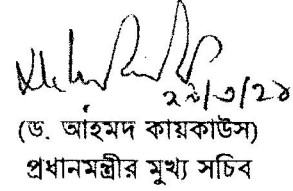 ২৮/৩/২১
(ড. আহমদ কায়কাউস)
প্রধানমন্ত্রীর মুখ্য সচিব